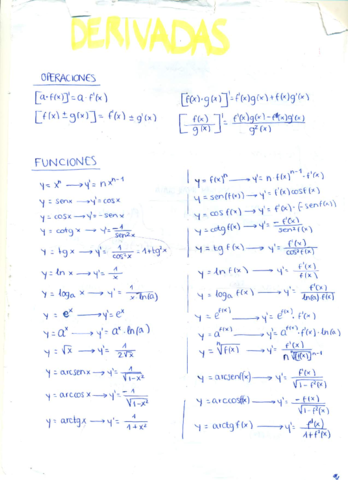 DERIVADAS
OPERACIONES
[a·f(x)]' = a·f'(x)
[f(x) ± g(x)]' = f'(x) ± g'(x)
[f(x)·g(x)]' = f'(x)g(x) + f(x)g'(x)
[f(x)/g(x)]' = f'(x)g(x) - f(x)g'(x)/g²(x)
FUNCIONES
y = xⁿ → y' = n xⁿ⁻¹
y = senx → y' = cosx
y = cosx → y' = -senx
y = cotgx → y' = -1/sen²x
y = tgx → y' = 1/cos²x = 1+tg²x
y = ln x → y' = 1/x
y = logₐ x → y' = 1/x·ln(a)
y = eˣ → y' = eˣ
y = aˣ → y' = aˣ·ln(a)
y = √x → y' = 1/2√x
y = arcsenx → y' = 1/√1-x²
y = arccosx → y' = -1/√1-x²
y = arctgx → y' = 1/1+x²
y = f(x)ⁿ → y' = n·f(x)ⁿ⁻¹·f'(x)
y = sen(f(x)) → y' = f'(x)cosf(x)
y = cosf(x) → y' = f'(x)·(-senf(x))
y = cotgf(x) → y' = -f'(x)/sen²f(x)
y = tgf(x) → y' = f'(x)/cos²f(x)
y = ln f(x) → y' = f'(x)/f(x)
y = logₐ f(x) → y' = f'(x)/ln(a)·f(x)
y = e^f(x) → y' = e^f(x)·f'(x)
y = a^f(x) → y' = a^f(x)·f'(x)·ln(a)
y = ⁿ√f(x) → y' = f'(x)/n ⁿ√[f(x)]ⁿ⁻¹
y = arcsenf(x) → y' = f'(x)/√1-f²(x)
y = arccosf(x) → y' = -f'(x)/√1-f²(x)
y = arctgf(x) → y' = f'(x)/1+f²(x)